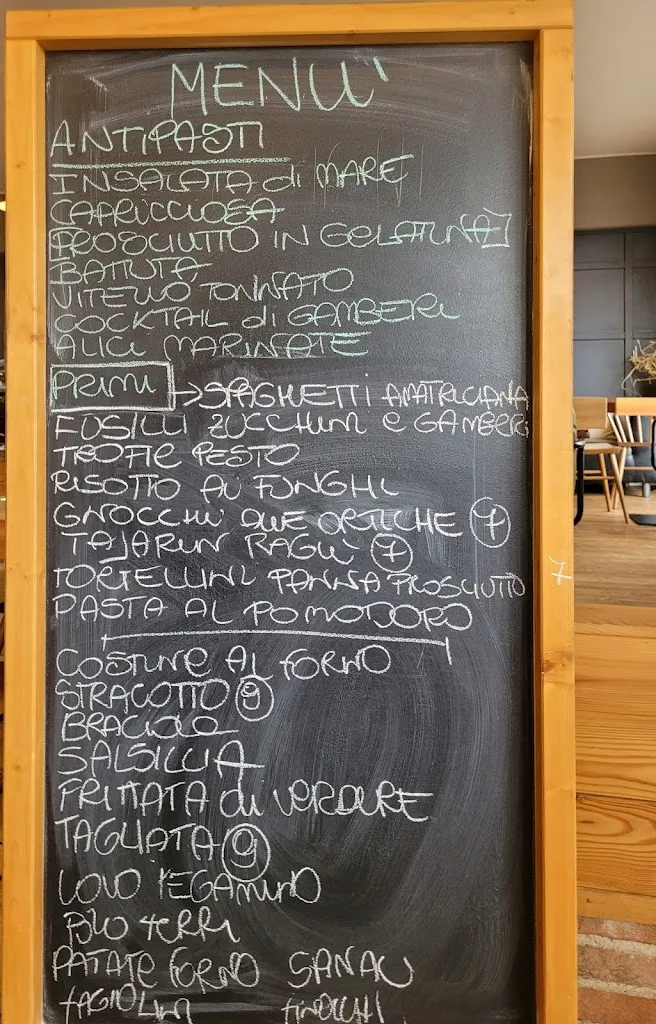 MENU'
ANTIPASTI
INSALATA di MARE
CAPRICCIOSA
PROSCIUTTO IN GELATINA
BATTUTA
VITELLO TONNATO
COCKTAIL di GAMBERI
ALICI MARINATE
PRIMI → SPAGHETTI AMATRICIANA
FUSILLI ZUCCHINI e GAMBERI
TROFIE PESTO
RISOTTO AI FUNGHI
GNOCCHI ALLE ORTICHE 7
TAJARIN RAGU' 7
TORTELLINI PANNA PROSCIUTTO 7
PASTA AL POMODORO
COSTINE AL FORNO
STRACOTTO 9
BRACIOLA
SALSICCIA
FRITTATA di VERDURE
TAGLIATA 9
UOVO TEGAMINO
PATATE FORNO SPINACI
FAGIOLINI FINOCCHI